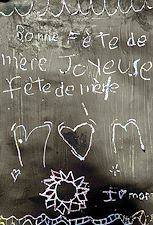 Bonne Fête de
mère Joyeuse
fête de mère
M♥M
I ♥ mom